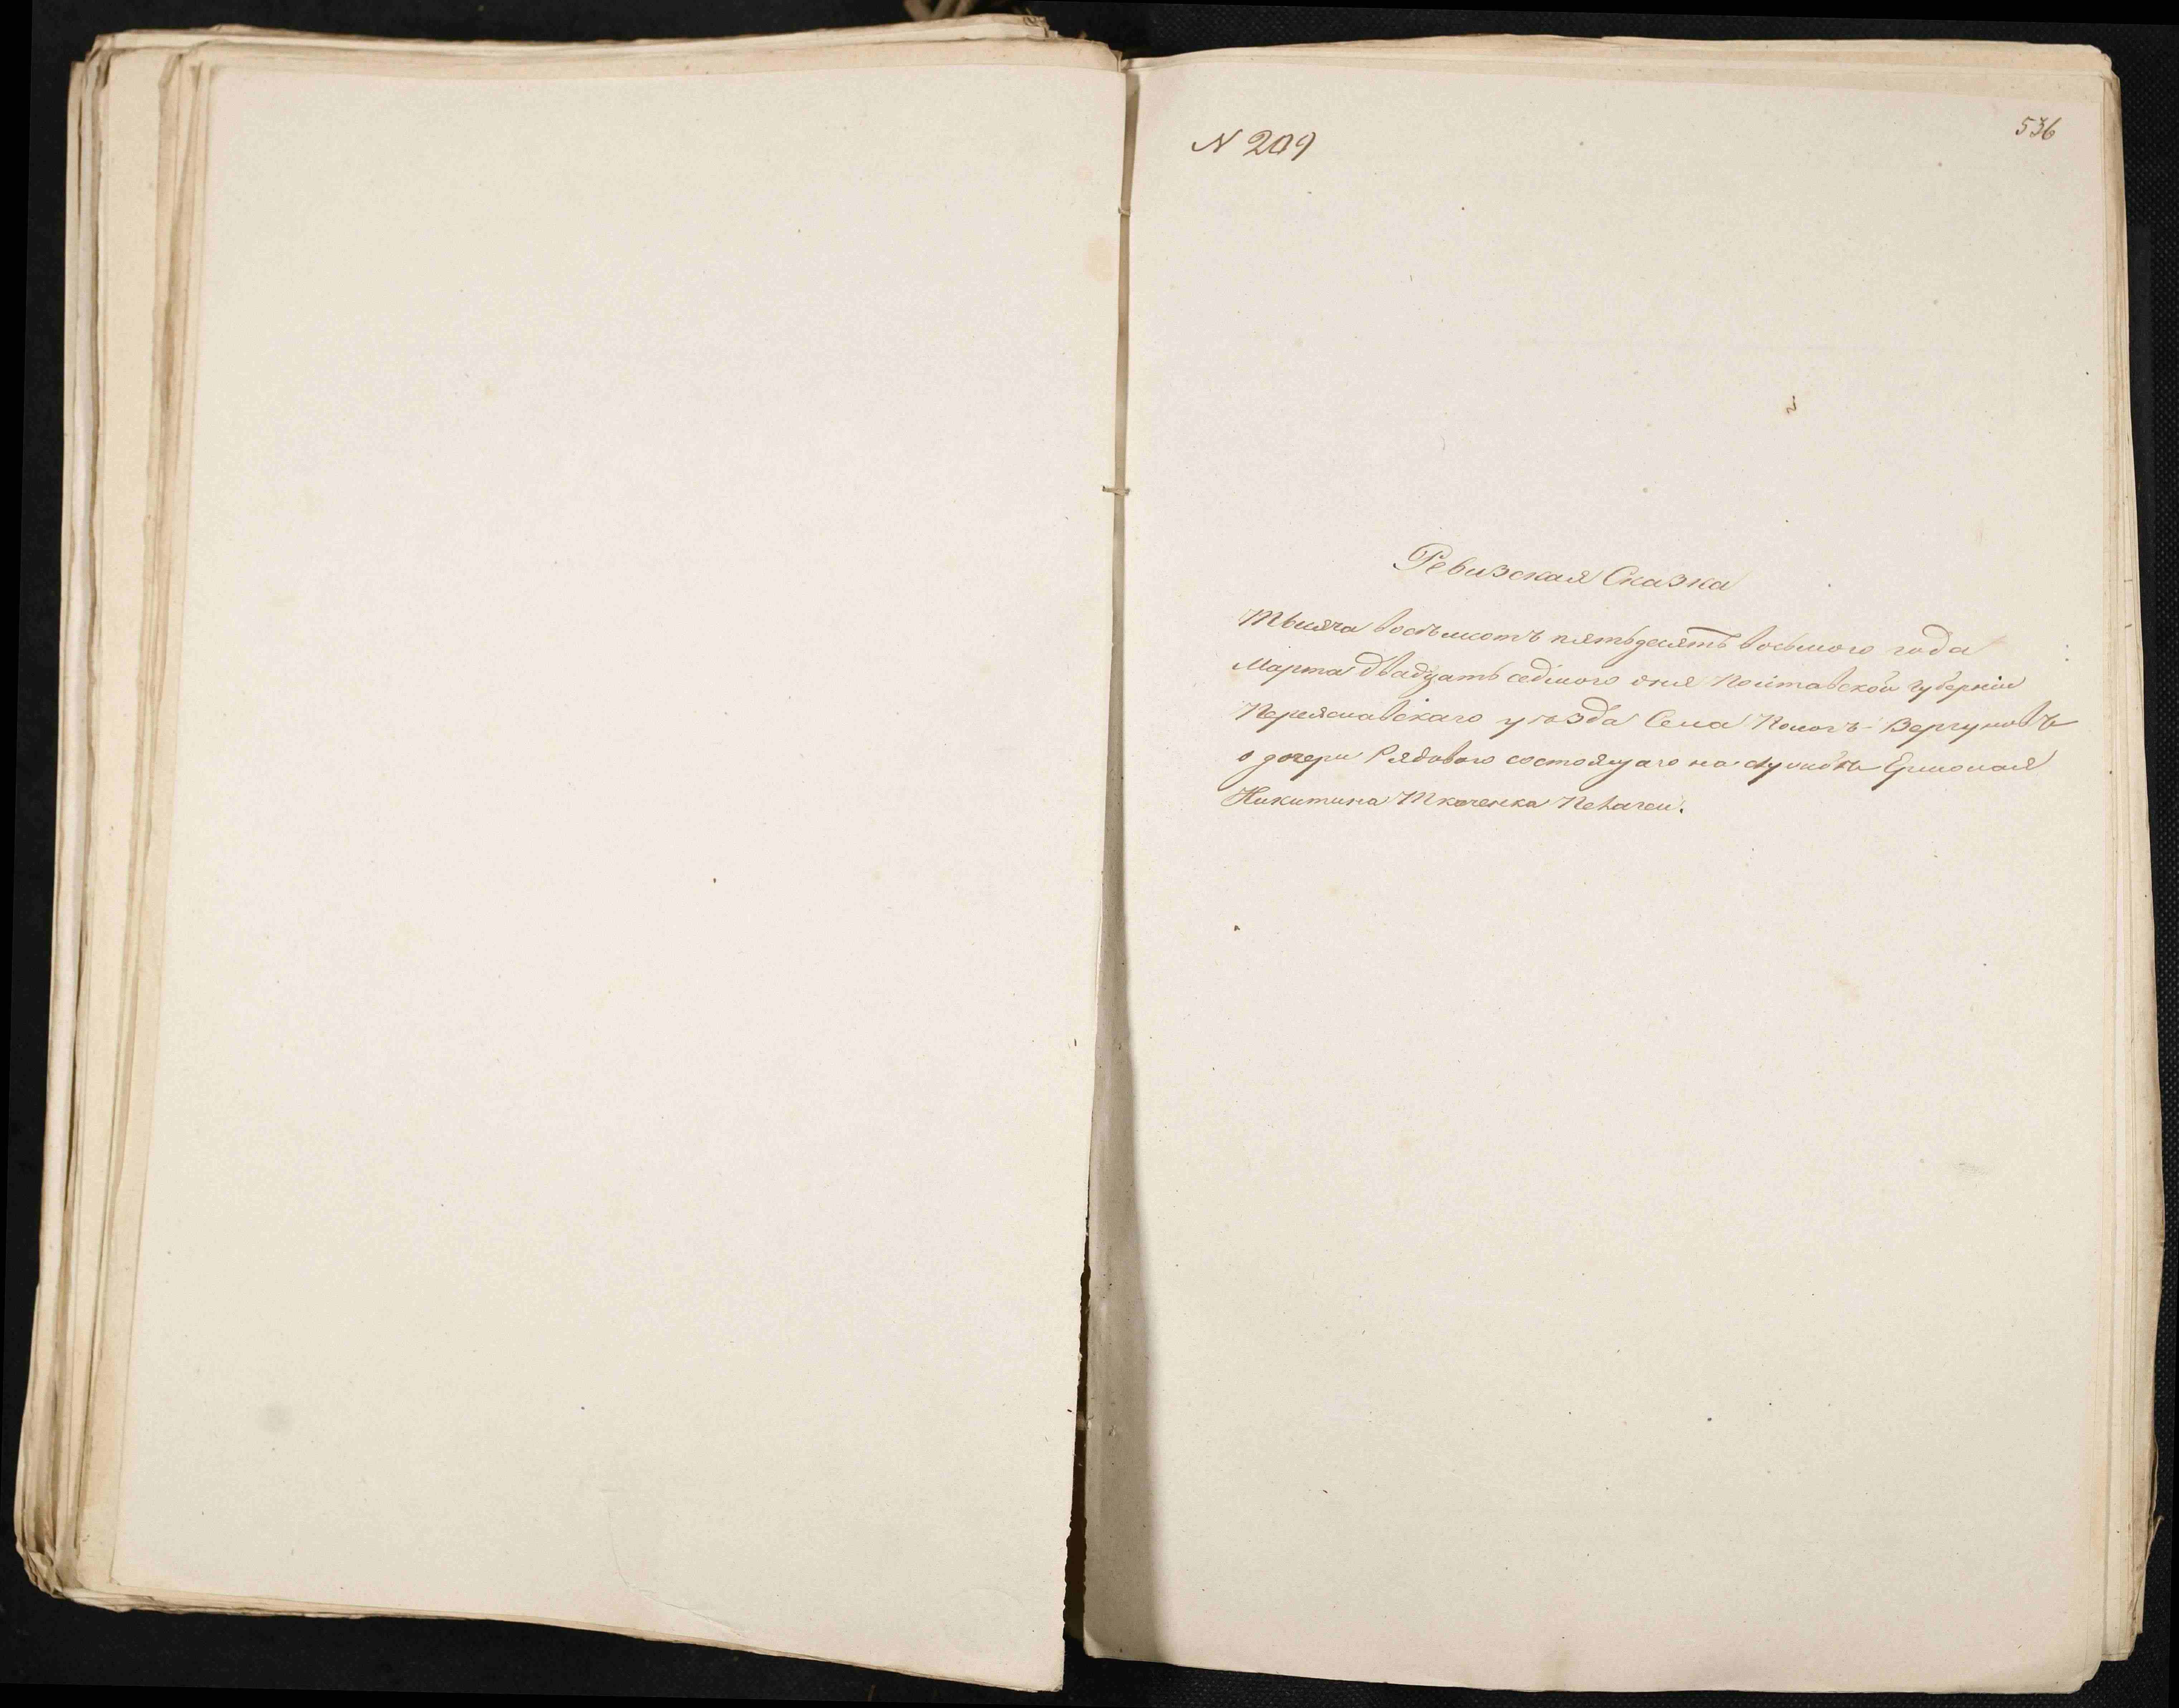 N 209
536
Ревизская Сказка
Тысяча восемьсотъ пятьдесятъ восьмого года
Марта двадцать седмого дня Полтавской губерніи
Переяславскаго уѣзда Села Помокъ-Вергуновъ
о дочери Рядового состоящаго на службѣ Ермолая
Никитина Ткаченка